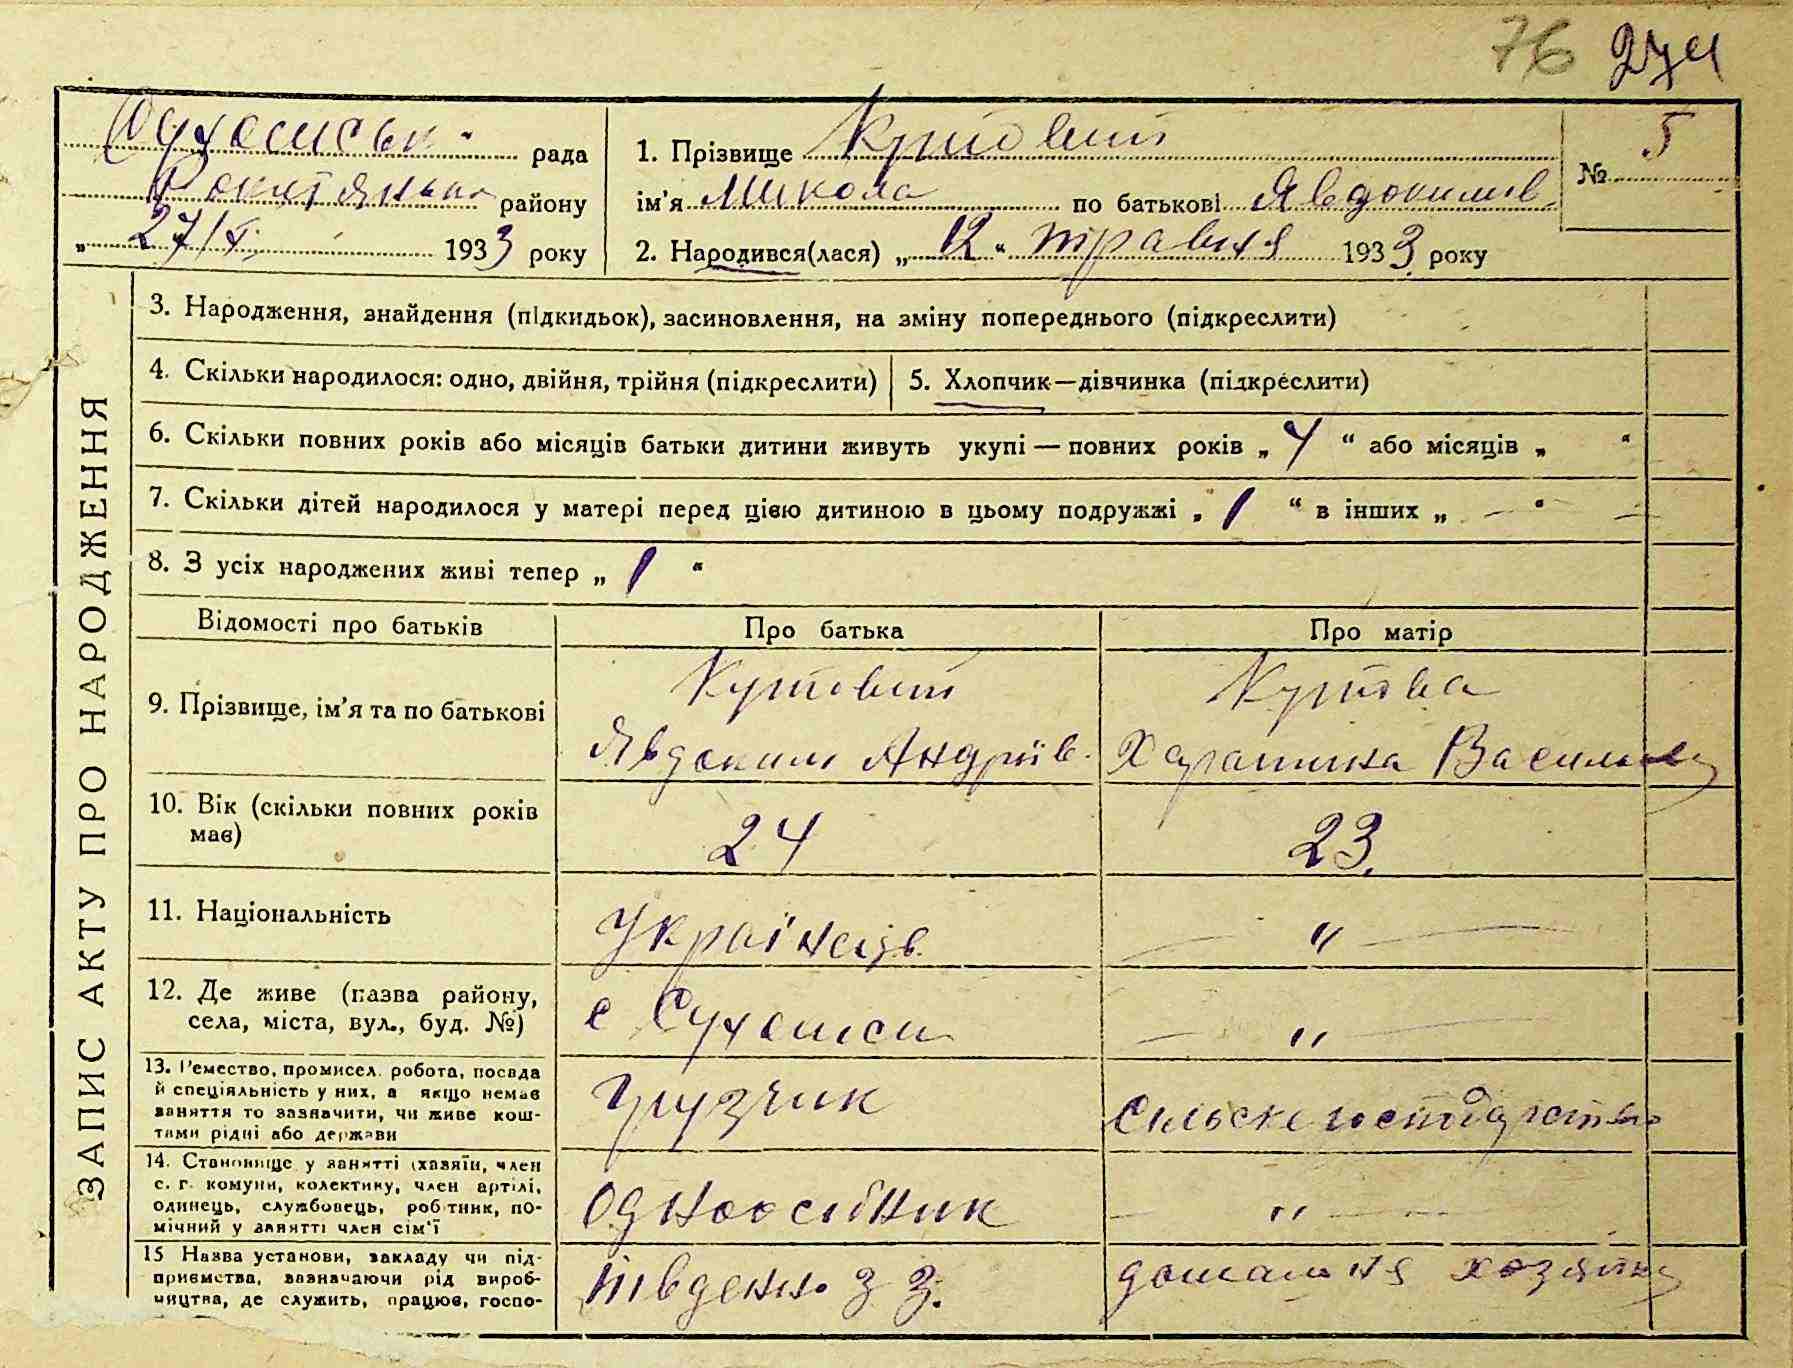 76 274
Сухолиськ. рада
Рокитянськ району
„ 27/V 1933 року
1. Прізвище Кутовий
ім'я Микола по батькові Явдокимів.
2. Народився(лася) „ 12 “ травня 1933 року
№ 5
ЗАПИС АКТУ ПРО НАРОДЖЕННЯ
3. Народження, знайдення (підкидьок), засиновлення, на зміну попереднього (підкреслити)
4. Скільки народилося: одно, двійня, трійня (підкреслити)
5. Хлопчик—дівчинка (підкреслити)
6. Скільки повних років або місяців батьки дитини живуть укупі — повних років „ 4 “ або місяців „ “
7. Скільки дітей народилося у матері перед цією дитиною в цьому подружжі „ 1 “ в інших „ — “
8. З усіх народжених живі тепер „ 1 “
Відомості про батьків
Про батька
Про матір
9. Прізвище, ім'я та по батькові
Кутовий
Явдоким Андріїв.
Кутова
Харитина Васильів
10. Вік (скільки повних років
має)
24
23.
11. Національність
Українців.
— „ —
12. Де живе (назва району,
села, міста, вул., буд. №)
с Сухолиси
— „ —
13. Ремество, промисел, робота, посада
й спеціяльність у них, а якщо немає
заняття то зазначити, чи живе кош-
тами рідні або держави
Грузчик
Сільске господарство
14. Становище у занятті (хазяїн, член
с. г. комуни, колективу, член артілі,
одинець, службовець, робітник, по-
мічний у занятті член сім'ї
Одноосібник
— „ —
15 Назва установи, закладу чи під-
приємства, зазначаючи рід вироб-
ництва, де служить, працює, госпо-
Південно З З.
домашня хозяйка